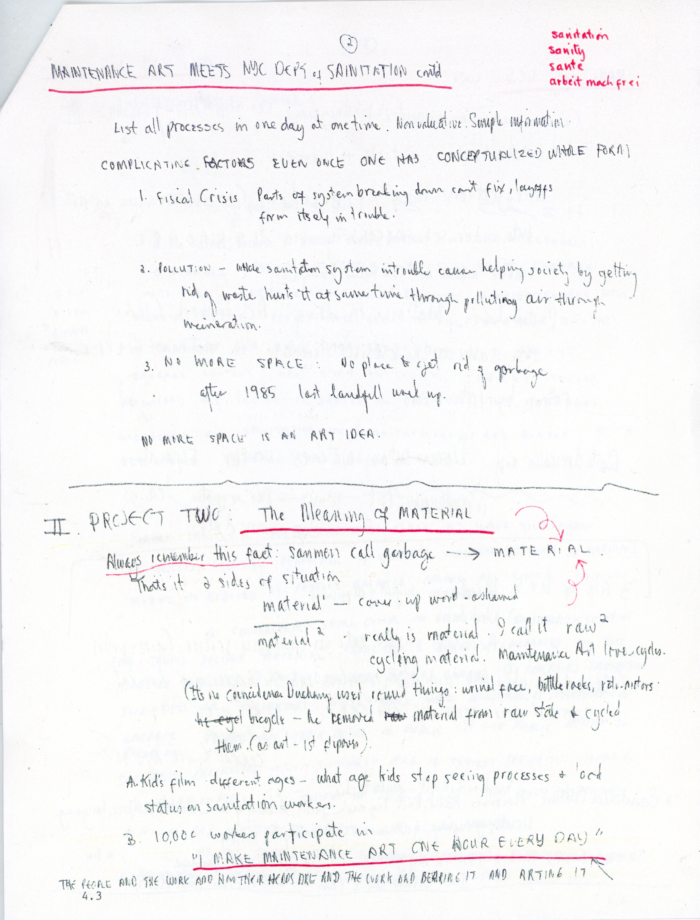 2
sanitation
sanity
santé
arbeit mach frei
MAINTENANCE ART MEETS NYC DEPT of SANITATION contd
List all processes in one day at one time. Nonvaluative. Simple information.
COMPLICATING FACTORS EVEN ONCE ONE HAS CONCEPTUALIZED WHOLE FORM
1. Fiscal Crisis Parts of system breaking down can't fix, layoffs
form itself in trouble.
2. POLLUTION – whole sanitation system in trouble cause helping society by getting
rid of waste hurts it at same time through polluting air through
incineration.
3. NO MORE SPACE: No place to get rid of garbage
after 1985 last landfill used up.
NO MORE SPACE IS AN ART IDEA.
II. PROJECT TWO: The Meaning of MATERIAL
Always remember this fact: sanmen call garbage → MATERIAL.
That's it 2 sides of situation
material¹ – cover-up word-ashamed
material² - really is material. I call it raw²
cycling material. Maintenance Art love cycles.
(It's no coincidence Duchamp used round things: urinal face, bottleracks, roto-motors.
bicycle – he removed material from raw state & cycled
them. (as art - 1st
A. Kid's film - different ages – what age kids stop seeing processes &
status on sanitation workers.
B. 10,000 workers participate in
"I MAKE MAINTENANCE ART ONE HOUR EVERY DAY"
THE PEOPLE AND THE WORK AND THEIR HEADS AND THE WORK AND BEARING IT AND ARTING IT
4.3